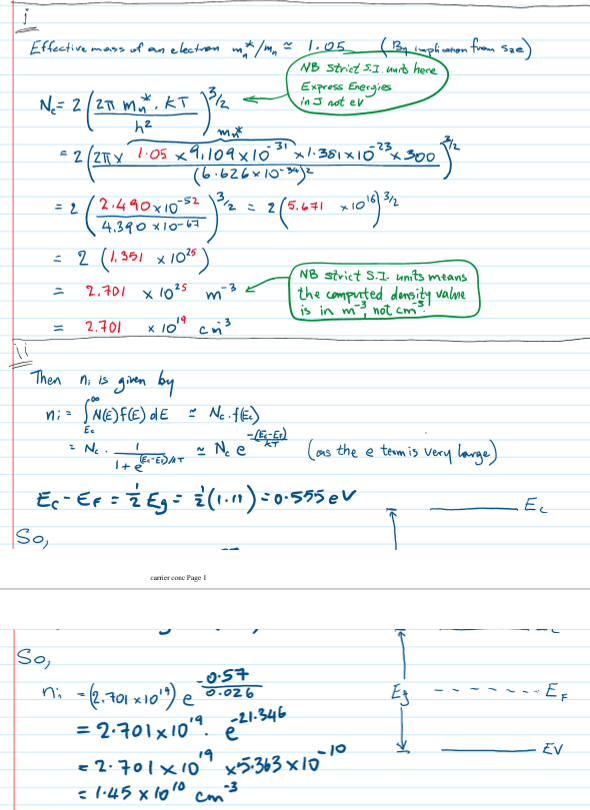 i
Effective mass of an electron mn*/mn ≃ 1.05 (By implication from size)
NB Strict S.I. units here
Express Energies
in J not eV
Nc = 2 (2π mn*. kT / h²)^3/2
mn*
= 2 (2π × 1.05 × 9.109 × 10^-31 × 1.381 × 10^-23 × 300 / (6.626 × 10^-34)²)^3/2
= 2 (2.490 × 10^-52 / 4.390 × 10^-67)^3/2 = 2 (5.671 × 10^16)^3/2
= 2 (1.351 × 10^25)
= 2.701 × 10^25 m^-3
NB strict S.I. units means
the computed density value
is in m^-3, not cm^-3.
= 2.701 × 10^19 cm^-3
ii
Then ni is given by
ni = ∫Ec^∞ N(E) f(E) dE ≃ Nc . f(Ec)
= Nc . 1 / (1 + e^(Ec-Ef)/kT) ≃ Nc e^-(Ec-Ef)/kT (as the e term is very large)
Ec - EF = 1/2 Eg = 1/2 (1.11) = 0.555 eV
Ec
So,
carrier conc Page 1
So,
ni = (2.701 × 10^19) e^-0.57/0.026
Eg
EF
= 2.701 × 10^19 . e^-21.346
EV
= 2.701 × 10^19 × 5.363 × 10^-10
= 1.45 × 10^10 cm^-3